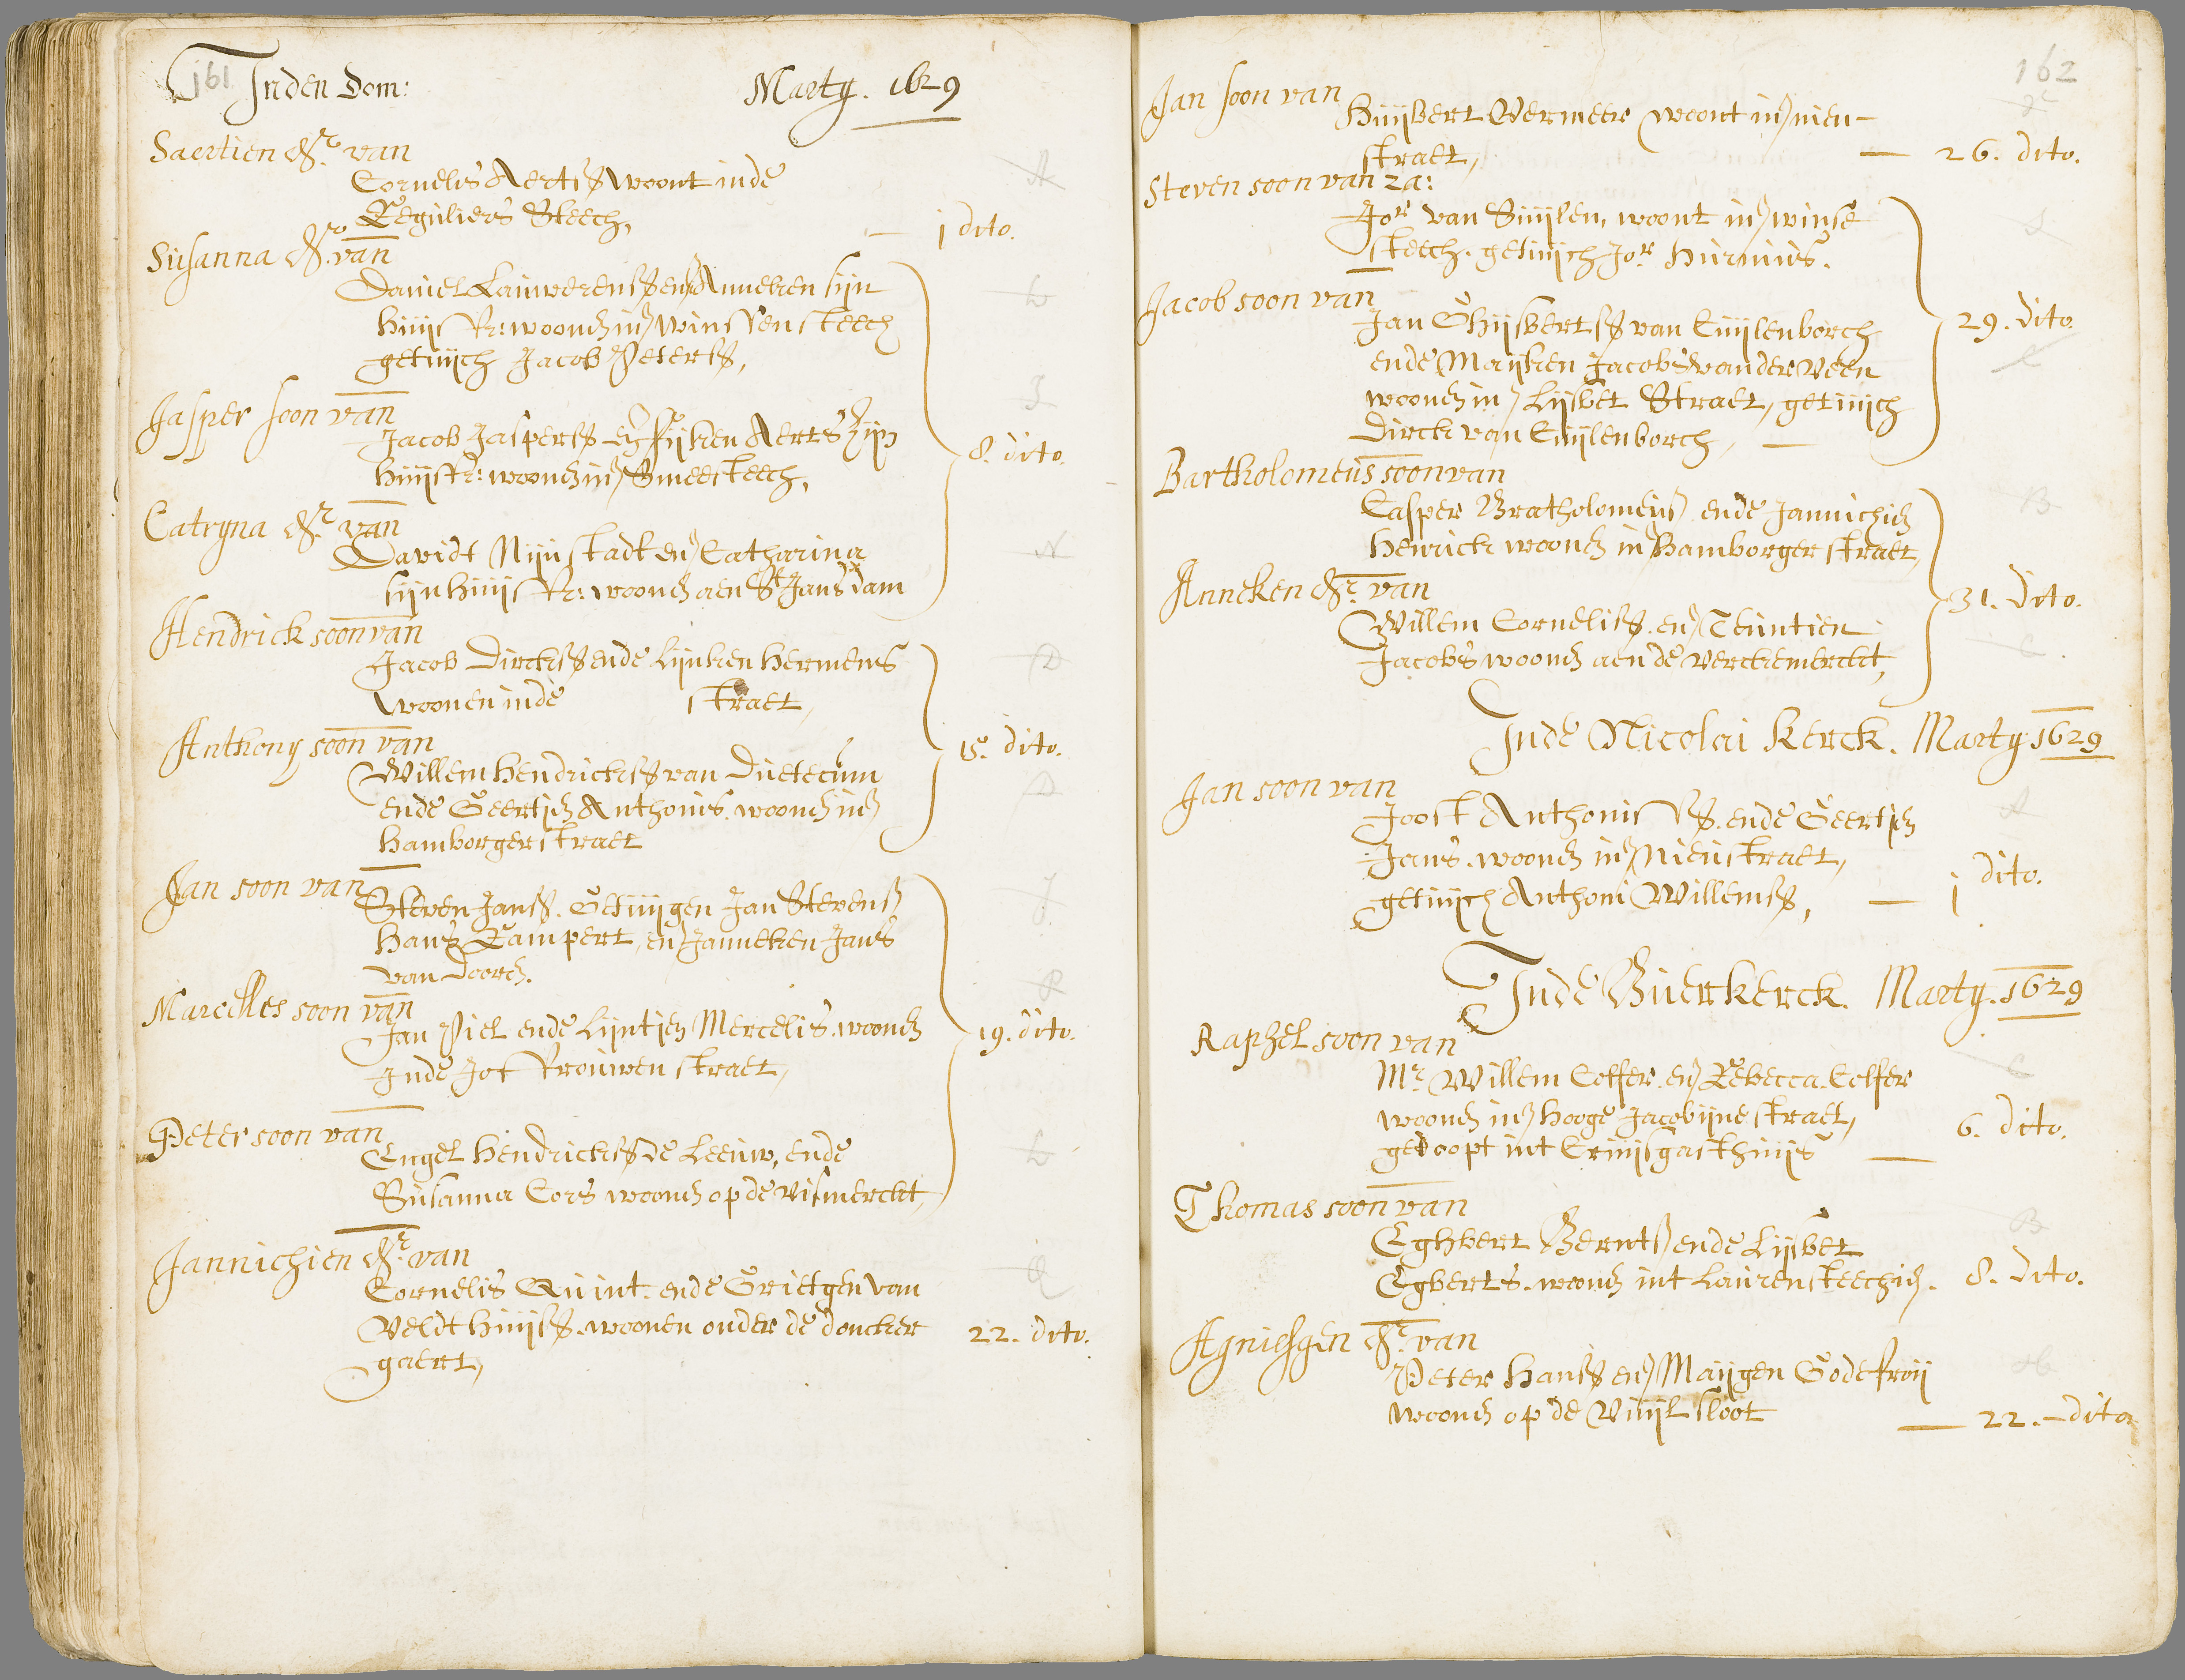 161 Inden Dom: Marty. 1629
Saertien dr. van
Cornelis Aertss woont inde
Reguliers Steech,
— 1 dito.
Susanna dr. van
Daniel Lauwerenss en Anneken sijn
huijsvr: woonen in Winssensteech
getuijch Jacob Peterss,
Jasper soon van
Jacob Jasperss en Fijken Aerts zijn
huijsvr: woonen in Smeesteech,
8. dito.
Catryna dr. van
Davidt Nijnstadt en Catharina
sijn huijsvr: woonen aen St Jans dam
Hendrick soon van
Jacob Dirckss ende Lijnken Hermens
woonen inde straet,
Anthony soon van
Willem Hendrickss van Duetecum
ende Geertjen Anthonis. woonen in
Hamborgerstraet
15. dito.
Jan soon van
Steven Janss. Getuijgen Jan Stevenss
Hans Rampert, en Janneken Jans
van Doorn.
Marcelles soon van
Jan Piel ende Lijntjen Mercelis. woonen
Inde Jof vrouwen straet,
19. dito.
Peter soon van
Engel Hendrickss de Leeuw, ende
Susanna Cors woonen op de vismerckt,
Jannichien dr. van
Cornelis Quint. ende Grietgen van
Veldthuijss. woonen onder de doncker
gaert,
22. dito.
162
Jan soon van
Huijbert Vermeer woont in nieu-
straet,
— 26. dito.
Steven soon van za:
Jor van Suijlen, woont in winse
steech. getuijch Jor Hurnius.
Jacob soon van
Jan Ghijsbertss van Cuijlenborch
ende Maijken Jacobs vander Veen
woonen in Lijsbet Straet, getuijch
Dirck van Cuijlenborch,
29. dito.
Bartholomeus soon van
Casper Bratholomeuss ende Jannichien
Henrick woonen in Hamborger straet,
Anneken dr. van
Willem Corneliss. en Teuntien
Jacobs woonen aen de verckemerckt,
31. dito.
Inde Nicolai Kerck. Marty 1629
Jan soon van
Joost Anthonisss. ende Geertjen
Jans. woonen in Nieustraet,
getuijch Anthoni Willemss,
— 1 dito.
Inde Buerkerck. Marty. 1629
Raphel soon van
Mr. Willem Colfer. en Rebecca Colfer
woonen in hooge Jacobijne straet,
gedoopt int Cruijsgasthuijs
— 6. dito.
Thomas soon van
Eghbert Berntss ende Lijsbet
Egberts. woonen int Laurensteechien. 8. dito.
Agniesgen dr. van
Peter Hanss en Maijgen Godefroij
woonen op de Vuijl sloot
— 22. — dito